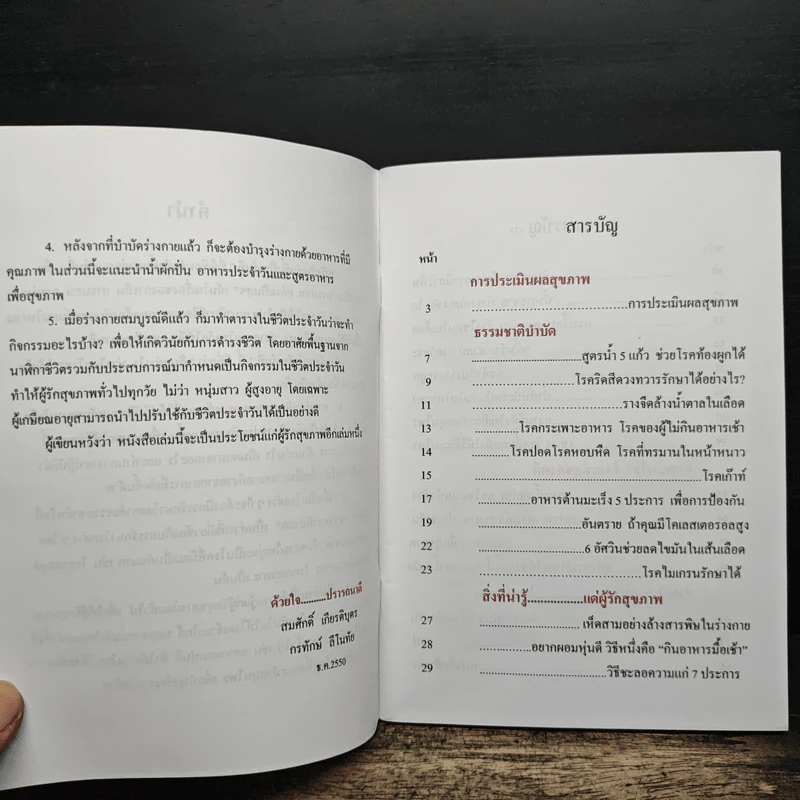 4. หลังจากที่บำบัดร่างกายแล้ว ก็จะต้องบำรุงร่างกายด้วยอาหารที่มี
คุณภาพ ในส่วนนี้จะแนะนำน้ำผักปั่น อาหารประจำวันและสูตรอาหาร
เพื่อสุขภาพ
5. เมื่อร่างกายสมบูรณ์ดีแล้ว ก็มาทำตารางในชีวิตประจำวันว่าจะทำ
กิจกรรมอะไรบ้าง? เพื่อให้เกิดวินัยกับการดำรงชีวิต โดยอาศัยพื้นฐานจาก
นาฬิกาชีวิตรวมกับประสบการณ์มากำหนดเป็นกิจกรรมในชีวิตประจำวัน
ทำให้ผู้รักสุขภาพทั่วไปทุกวัย ไม่ว่า หนุ่มสาว ผู้สูงอายุ โดยเฉพาะ
ผู้เกษียณอายุสามารถนำไปปรับใช้กับชีวิตประจำวันได้เป็นอย่างดี
ผู้เขียนหวังว่า หนังสือเล่มนี้จะเป็นประโยชน์แก่ผู้รักสุขภาพอีกเล่มหนึ่ง
ด้วยใจ..........ปรารถนาดี
สมศักดิ์ เกียรติบุตร
กรทักษ์ ลีโนทัย
ธ.ค.2550
สารบัญ
หน้า
การประเมินผลสุขภาพ
3 ..............................การประเมินผลสุขภาพ
ธรรมชาติบำบัด
7 ..............................สูตรน้ำ 5 แก้ว ช่วยโรคท้องผูกได้
9 ..............................โรคริดสีดวงทวารรักษาได้อย่างไร?
11 ..............................รางจืดล้างน้ำตาลในเลือด
13 ..............โรคกระเพาะอาหาร โรคของผู้ไม่กินอาหารเช้า
14 ..........โรคปอดโรคหอบหืด โรคที่ทรมานในหน้าหนาว
15 ..............................โรคเก๊าท์
17 ................อาหารต้านมะเร็ง 5 ประการ เพื่อการป้องกัน
19 ..............................อันตราย ถ้าคุณมีโคเลสเตอรอลสูง
22 ..............................6 อัศวินช่วยลดไขมันในเส้นเลือด
23 ..............................โรคไมเกรนรักษาได้
สิ่งที่น่ารู้................แด่ผู้รักสุขภาพ
27 ..............................เห็ดสามอย่างล้างสารพิษในร่างกาย
28 ................อยากผอมหุ่นดี วิธีหนึ่งคือ “กินอาหารมื้อเช้า”
29 ..............................วิธีชะลอความแก่ 7 ประการ